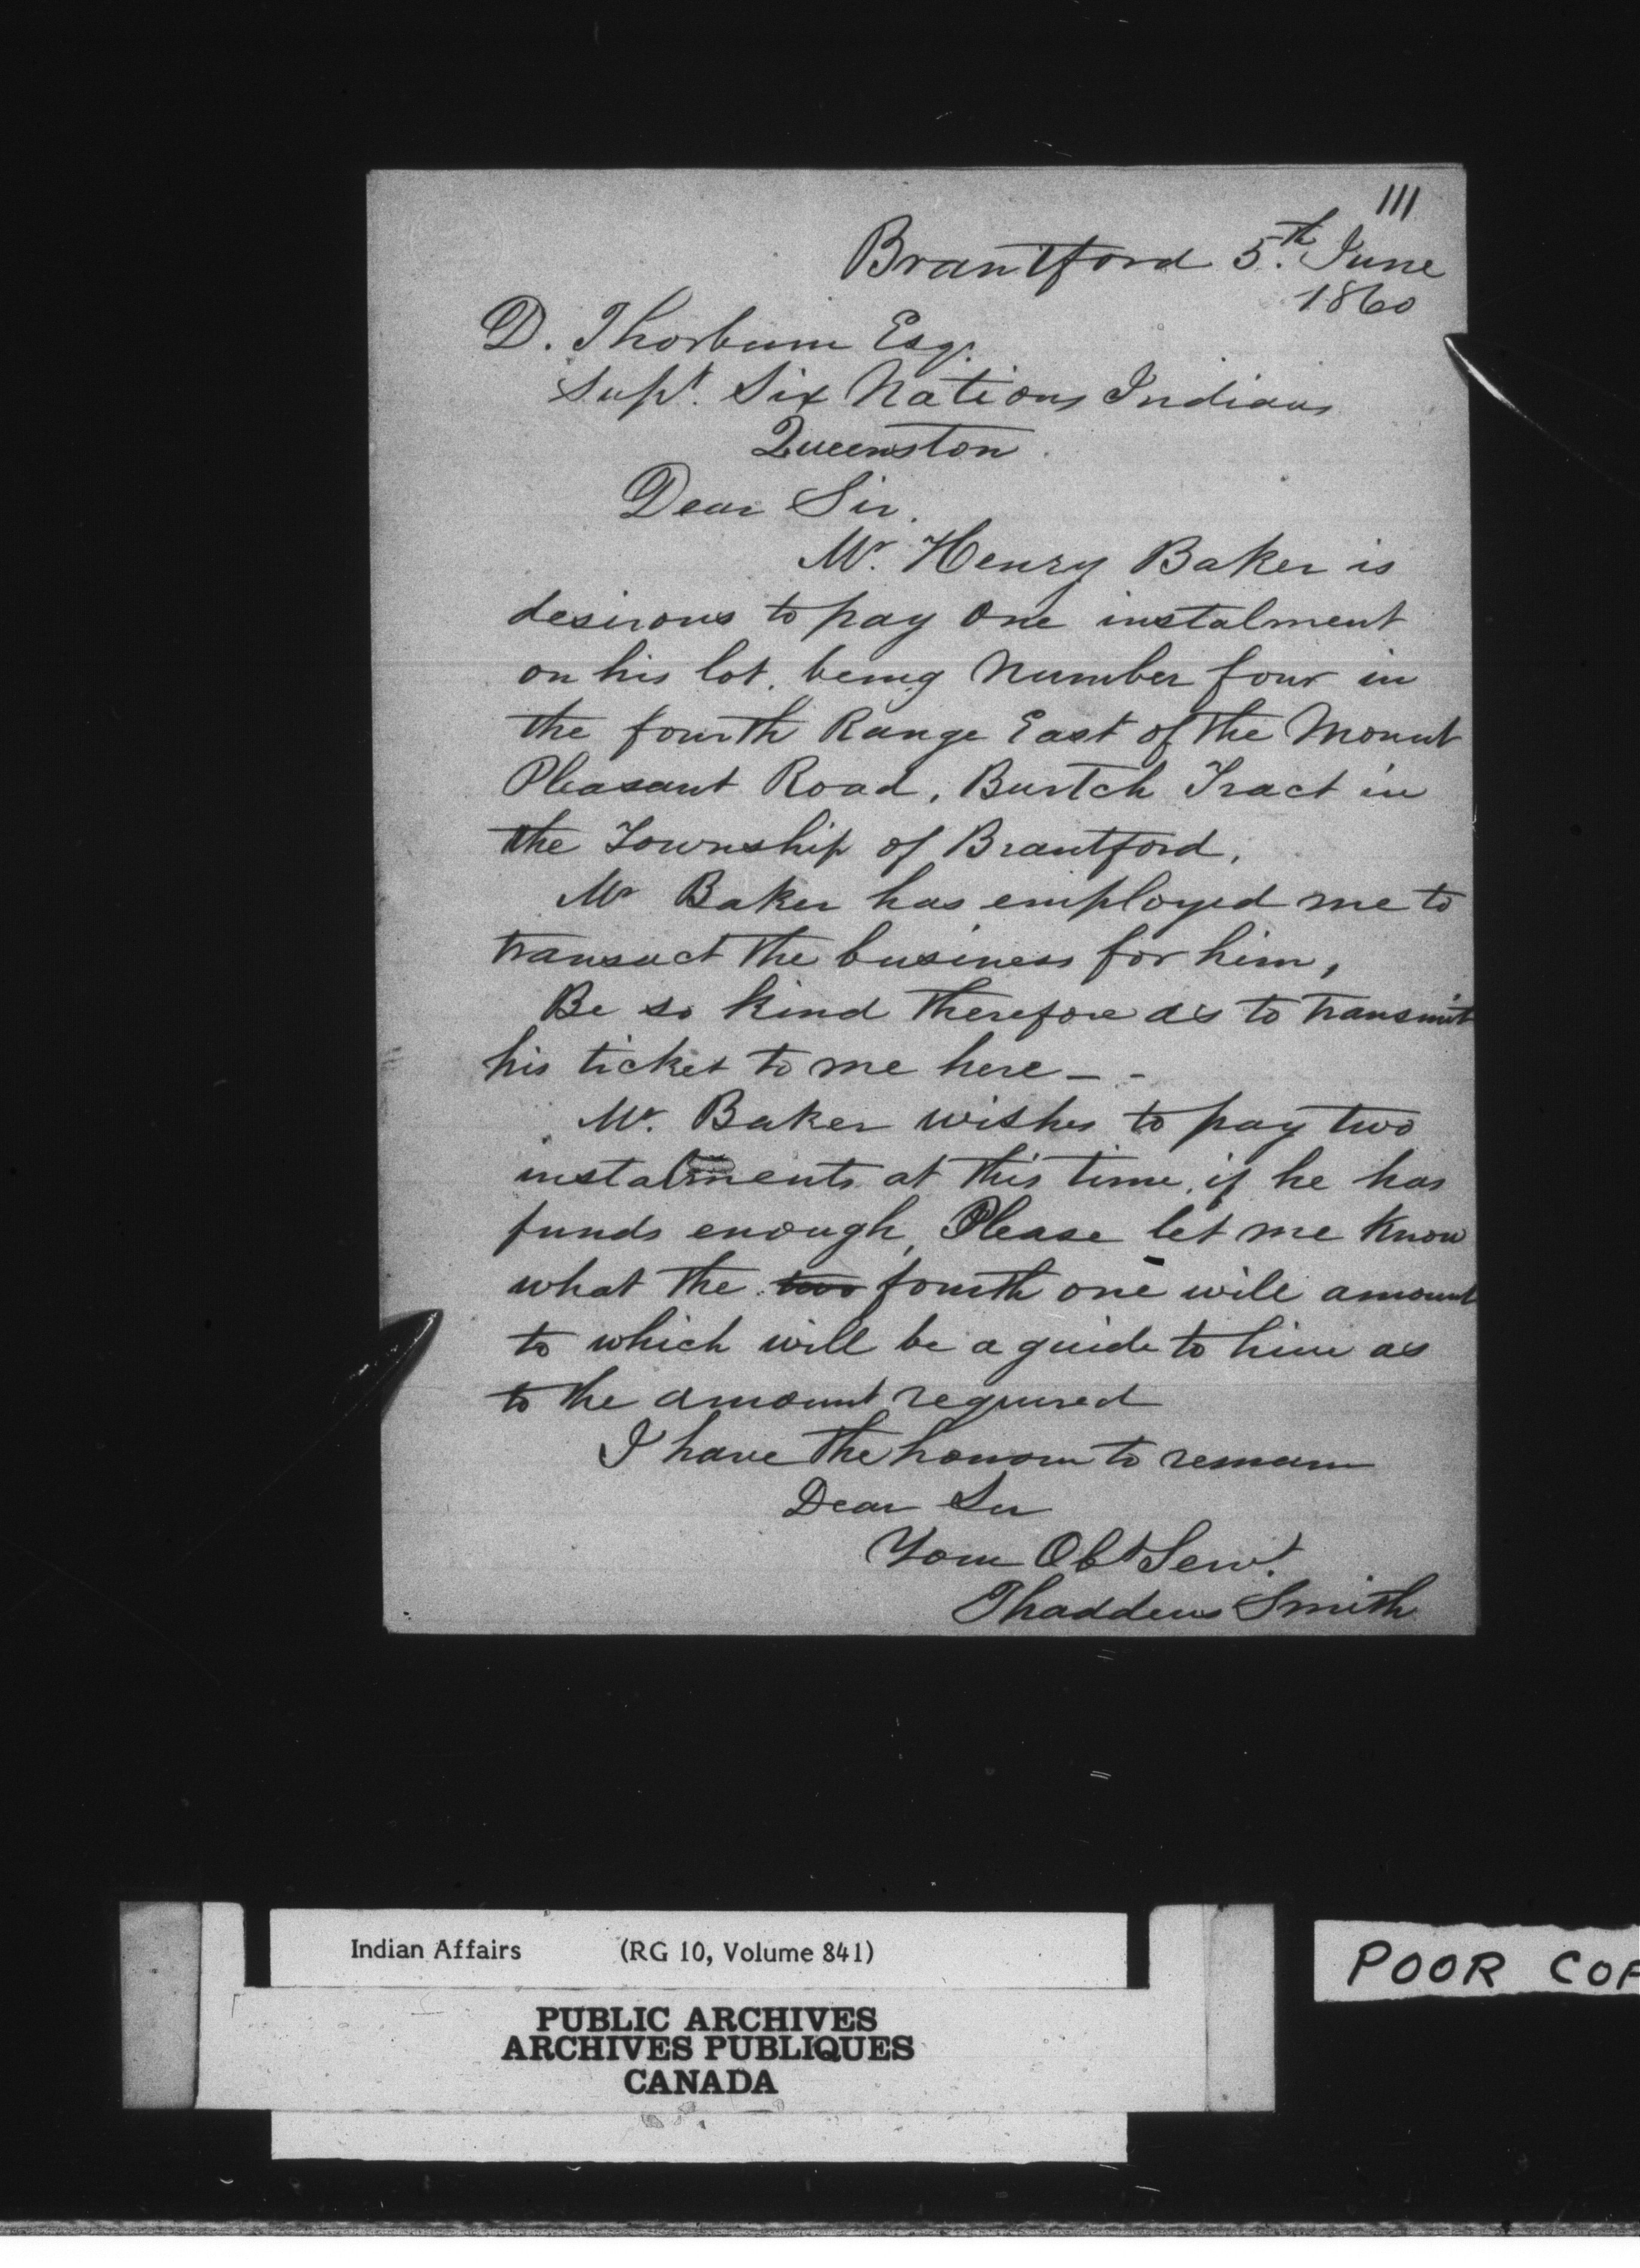 111
Brantford 5th. June
1860
D. Thorburn Esq.
Supt. Six Nations Indians
Queenston.
Dear Sir.
Mr. Henry Baker is
desirous to pay One instalment
on his lot. being Number four in
the fourth Range East of the Mount
Pleasant Road, Burtch Tract in
the Township of Brantford.
Mr Baker has employed me to
transact the business for him,
Be so kind therefore as to transmit
his ticket to me here - -
Mr. Baker wishes to pay two
instalments at this time, if he has
funds enough, Please let me Know
what the two fourth one will amount
to which will be a guide to him as
to the amount required
I have the honour to remain
Dear Sir
Your Obt Servt.
Thaddeus Smith
Indian Affairs (RG 10, Volume 841)
PUBLIC ARCHIVES
ARCHIVES PUBLIQUES
CANADA
POOR COP